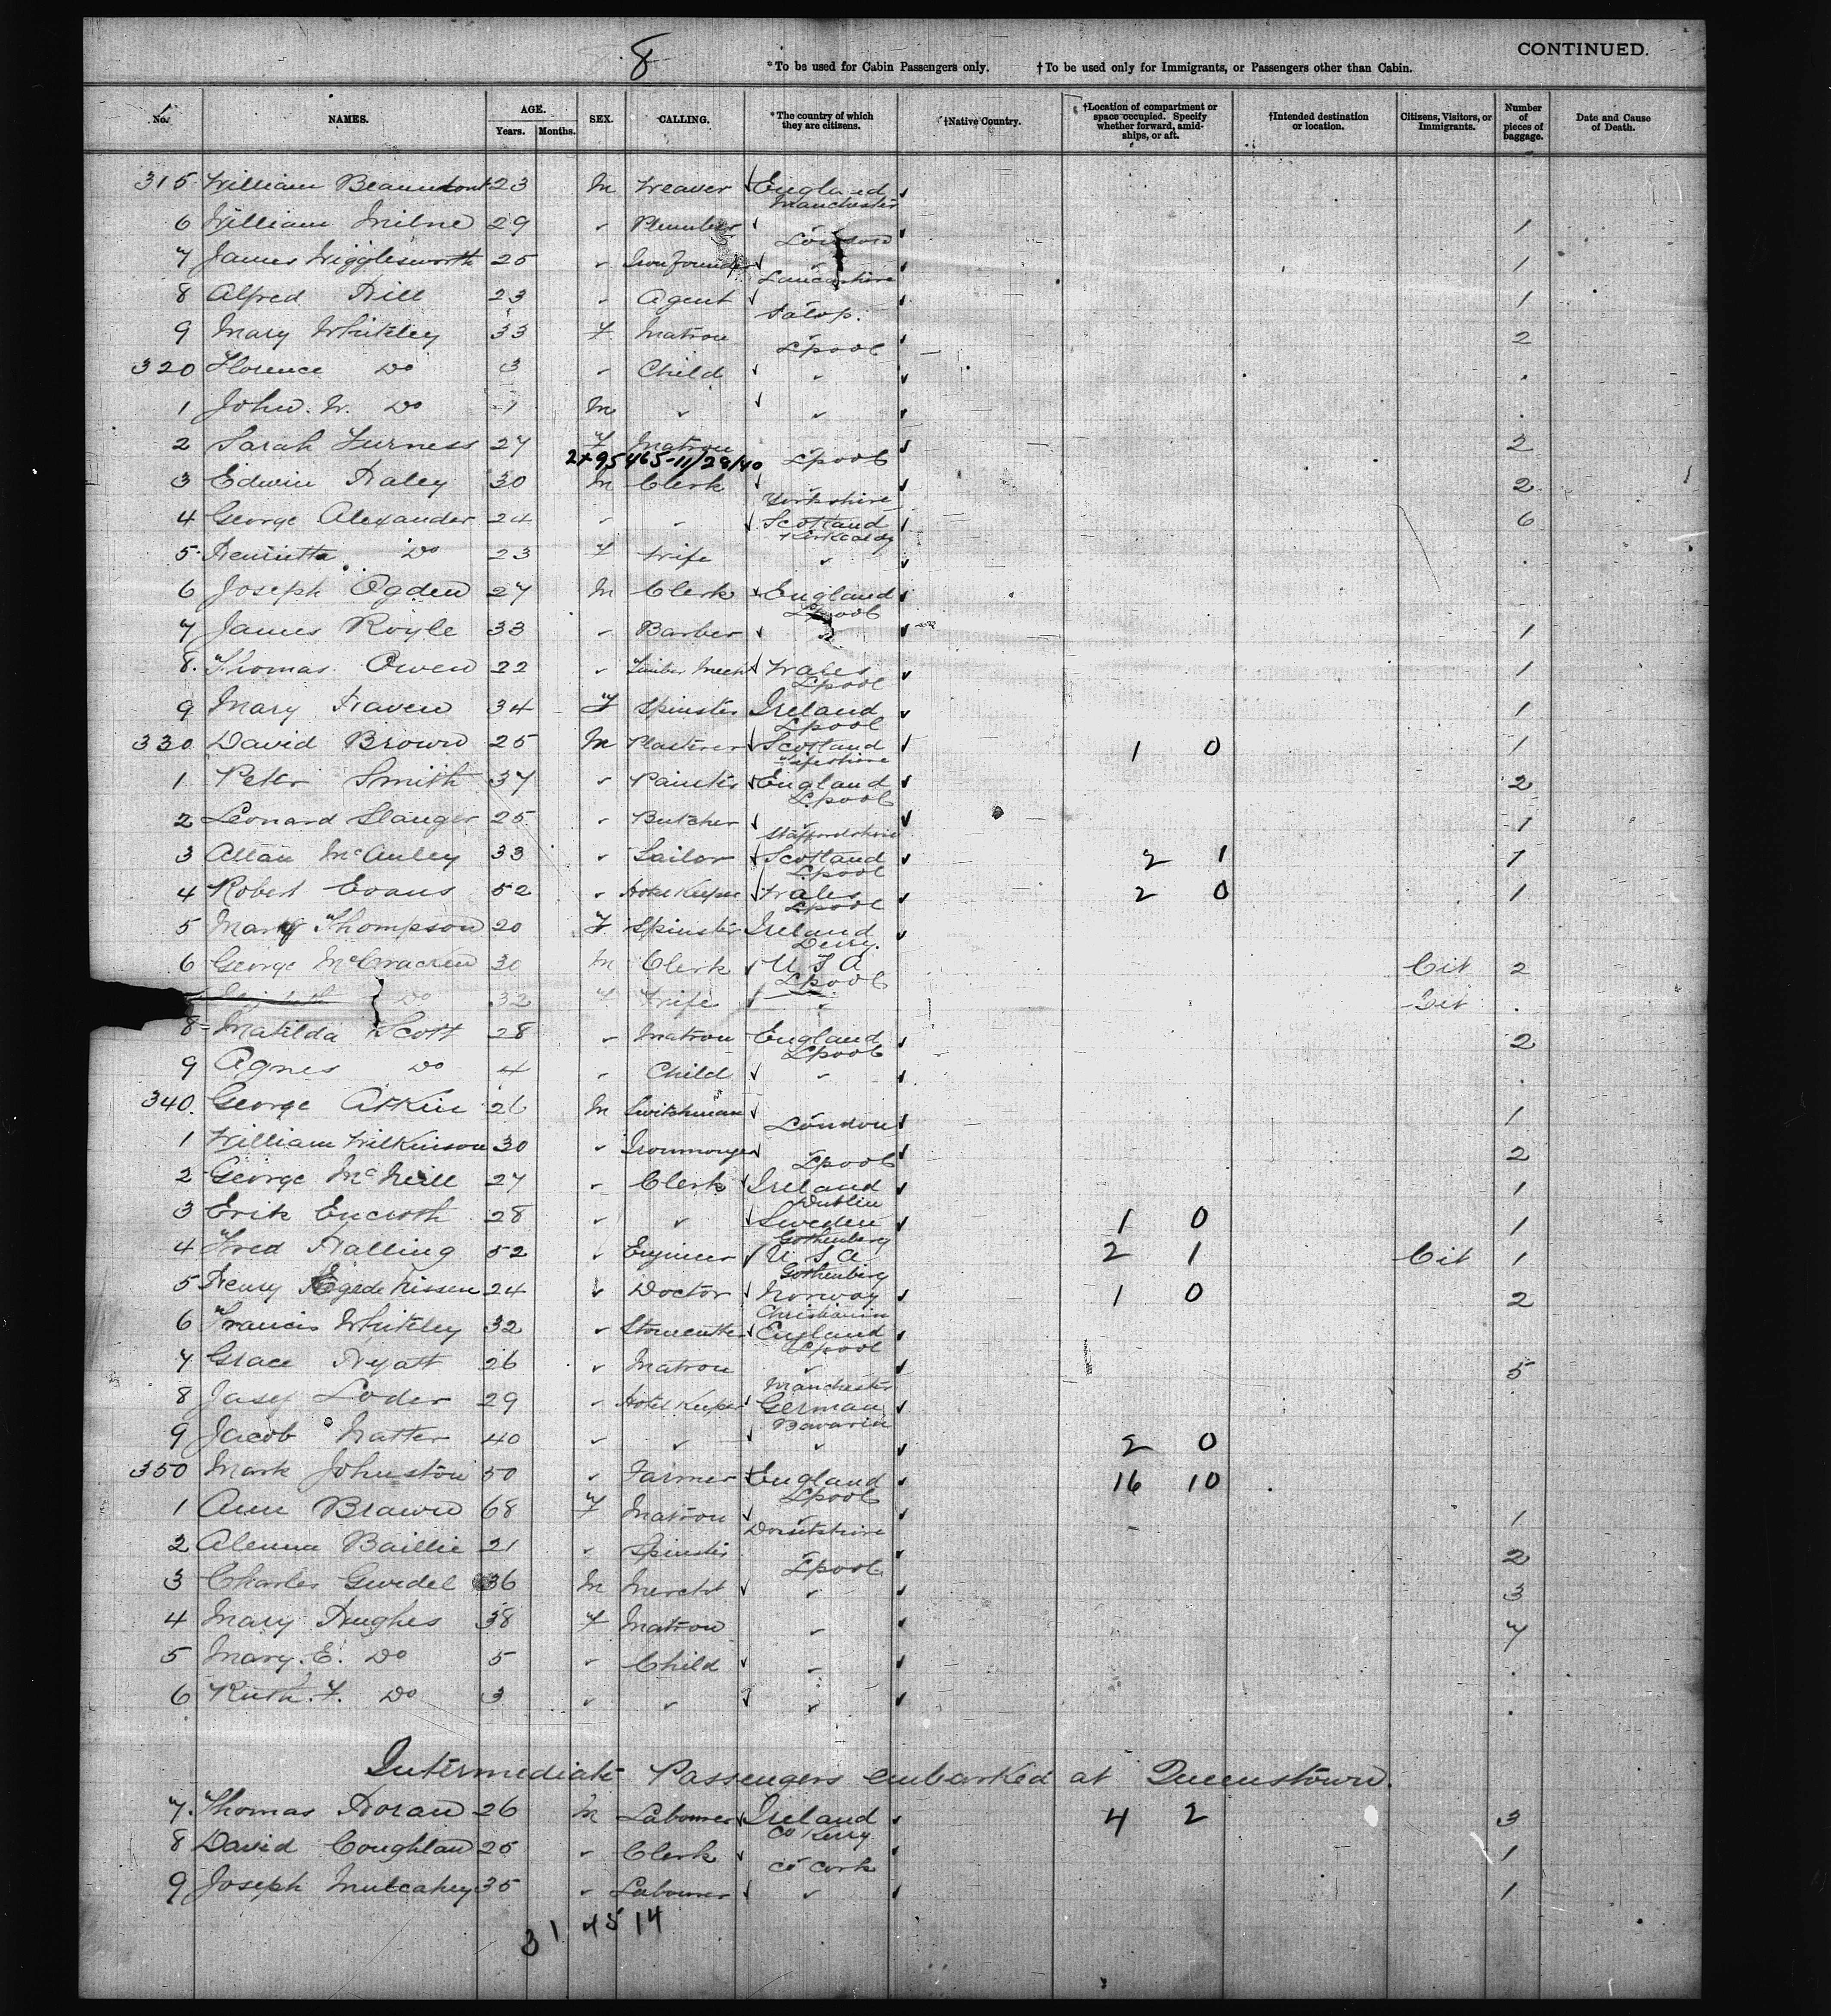 8
CONTINUED.
*To be used for Cabin Passengers only. †To be used only for Immigrants, or Passengers other than Cabin.
No. NAMES. AGE. Years. Months. SEX. CALLING. *The country of which they are citizens. †Native Country. †Location of compartment or space occupied. Specify whether forward, amidships, or aft. †Intended destination or location. Citizens, Visitors, or Immigrants. Number of pieces of baggage. Date and Cause of Death.
315 William Beaumont 23 M Weaver England
Manchester
6 William Milne 29 " Plumber " 1
London
7 James Wigglesworth 25 " Ironfounder " 1
Lancashire
8 Alfred Hill 23 " Agent " 1
Salop.
9 Mary Whiteley 33 F Matron " 2
L'pool
320 Florence Do 3 " Child "
1 John. W. Do 1 M " "
2 Sarah Furness 27 F Matron 2
2x95465-11/28/40 L'pool
3 Edwin Haley 30 M Clerk " 2
Yorkshire
4 George Alexander 24 " " Scotland 6
Kirkcaldy
5 Henrietta Do 23 F Wife "
6 Joseph Ogden 27 M Clerk England
L'pool
7 James Royle 33 " Barber " 1
8 Thomas Owen 22 " Timber Mercht Wales 1
L'pool
9 Mary Haven 34 F Spinster Ireland 1
L'pool
330 David Brown 25 M Plasterer Scotland 1 0 1
Fifeshire
1 Peter Smith 37 " Painter England 2
L'pool
2 Leonard Slanger 25 " Butcher " 1
Staffordshire
3 Allan McAuley 33 " Sailor Scotland 2 1 1
L'pool
4 Robert Evans 52 " Hotel Keeper Wales 2 0 1
L'pool
5 Mary Thompson 20 F Spinster Ireland
Derry.
6 George McCracken 30 M Clerk U S A Cit 2
L'pool
Do 32 F Wife " Cit
8 Matilda Scott 28 " Matron England 2
L'pool
9 Agnes Do 4 " Child "
340 George Atkin 26 M Switchman 1
London
1 William Wilkinson 30 " Ironmonger 2
L'pool
2 George McNeill 27 " Clerk Ireland 1
Dublin
3 Erik Encroth 28 " " Sweden 1 0 1
Gothenberg
4 Fred Halling 52 " Engineer U S A 2 1 Cit 1
Gothenberg
5 Henry Egede Nissen 24 " Doctor Norway 1 0 2
Christiania
6 Francis Whiteley 32 " Stonecutter England
L'pool
7 Grace Hyatt 26 " Matron " 5
Manchester
8 Loder 29 " Hotel Keeper German
Bavaria
9 Jacob Natter 40 " " " 2 0
350 Mark Johnston 50 " Farmer England 16 10
L'pool
1 Ann Brown 68 F Matron " 1
Dorsetshire
2 Baillie 21 " Spinster 2
L'pool
3 Charles Gwidel 36 M Mercht " 3
4 Mary Hughes 38 F Matron " 7
5 Mary. E. Do 5 " Child "
6 Ruth. F. Do 3 " " "
Intermediate Passengers embarked at Queenstown.
7 Thomas Horan 26 M Labourer Ireland 4 2 3
Co Kerry
8 David Coughlan 25 " Clerk " 1
Co Cork
9 Joseph Mulcahey 35 " Labourer " 1
31 45 14